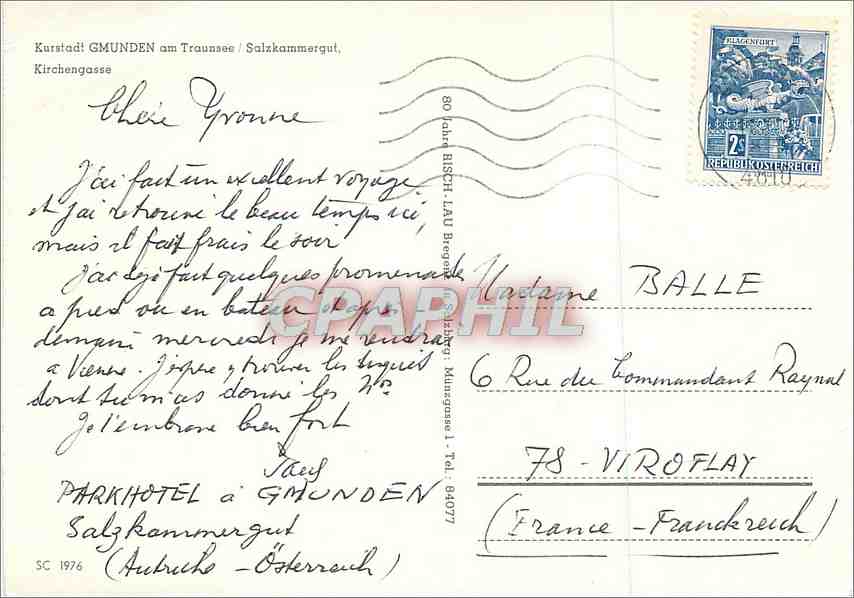 Kurstadt GMUNDEN am Traunsee / Salzkammergut,
Kirchengasse
Chère Yvonne
J'ai fait un excellent voyage
et j'ai retrouvé le beau temps ici,
mais il fait frais le soir
J'ai déjà fait quelques promenades
a pied ou en bateau et après
demain mercredi je me rendrai
a Vienne. J'espère y trouver les
dont tu m'as donné les Nos
Je t'embrasse bien fort
PARKHOTEL à GMUNDEN
Salzkammergut
(Autriche - Österreich)
SC 1976
80 Jahre RISCH-LAU Bregenz Salzburg: Münzgasse 1 - Tel.: 84077
KLAGENFURT
2S
REPUBLIK ÖSTERREICH
4810
Madame BALLE
6 Rue du Commandant Raynal
78 - VIROFLAY
(France - Franckreich)
CPAPHIL